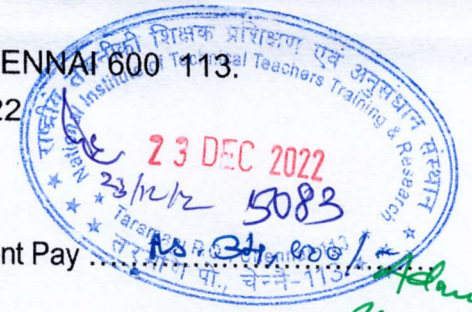 ENNAI 600 113.
22
राष्ट्रीय तकनीकी शिक्षक प्रशिक्षण एवं अनुसंधान संस्थान
National Institute of Technical Teachers Training & Research
23 DEC 2022
23/12/2
5083
Taramani P.O., Chennai-113
nt Pay ........ Rs. 34,000/-
तरमणि पो., चेन्नै-113